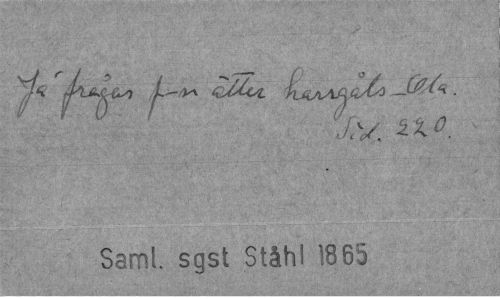 Já frågas f-n ätter harrgåls-Ola.
Sid. 220.
Saml. sgst Ståhl 1865